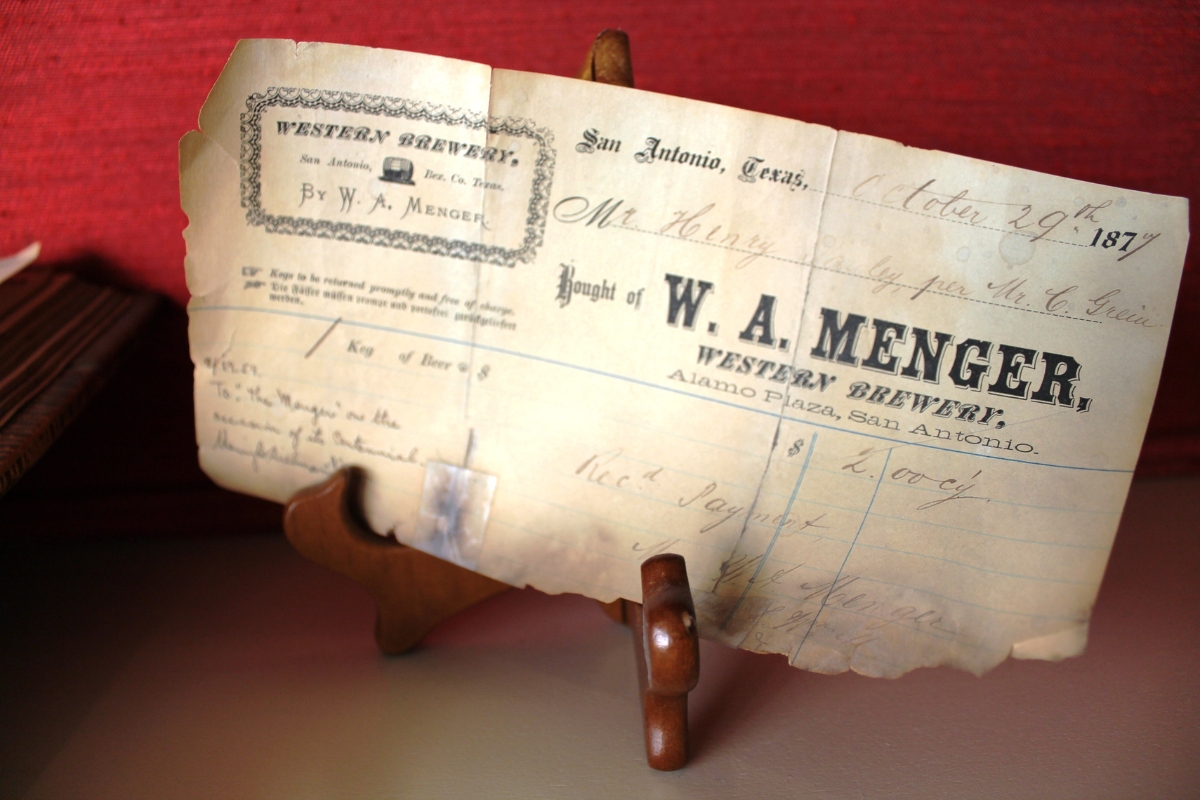 WESTERN BREWERY,
San Antonio, Bex. Co. Texas.
BY W. A. MENGER
Kegs to be returned promptly and free of charge.
Die Fässer müssen prompt und portofrei zurückgeliefert
werden.
San Antonio, Texas, October 29th 1877
Mr Henry per Mr. C. Grein
Bought of W. A. MENGER,
WESTERN BREWERY,
Alamo Plaza, San Antonio.
1 Keg of Beer @ $ $ 2.00
To "the Menger" on the
occasion of its Centennial.
Rec'd Payment
W. A. Menger